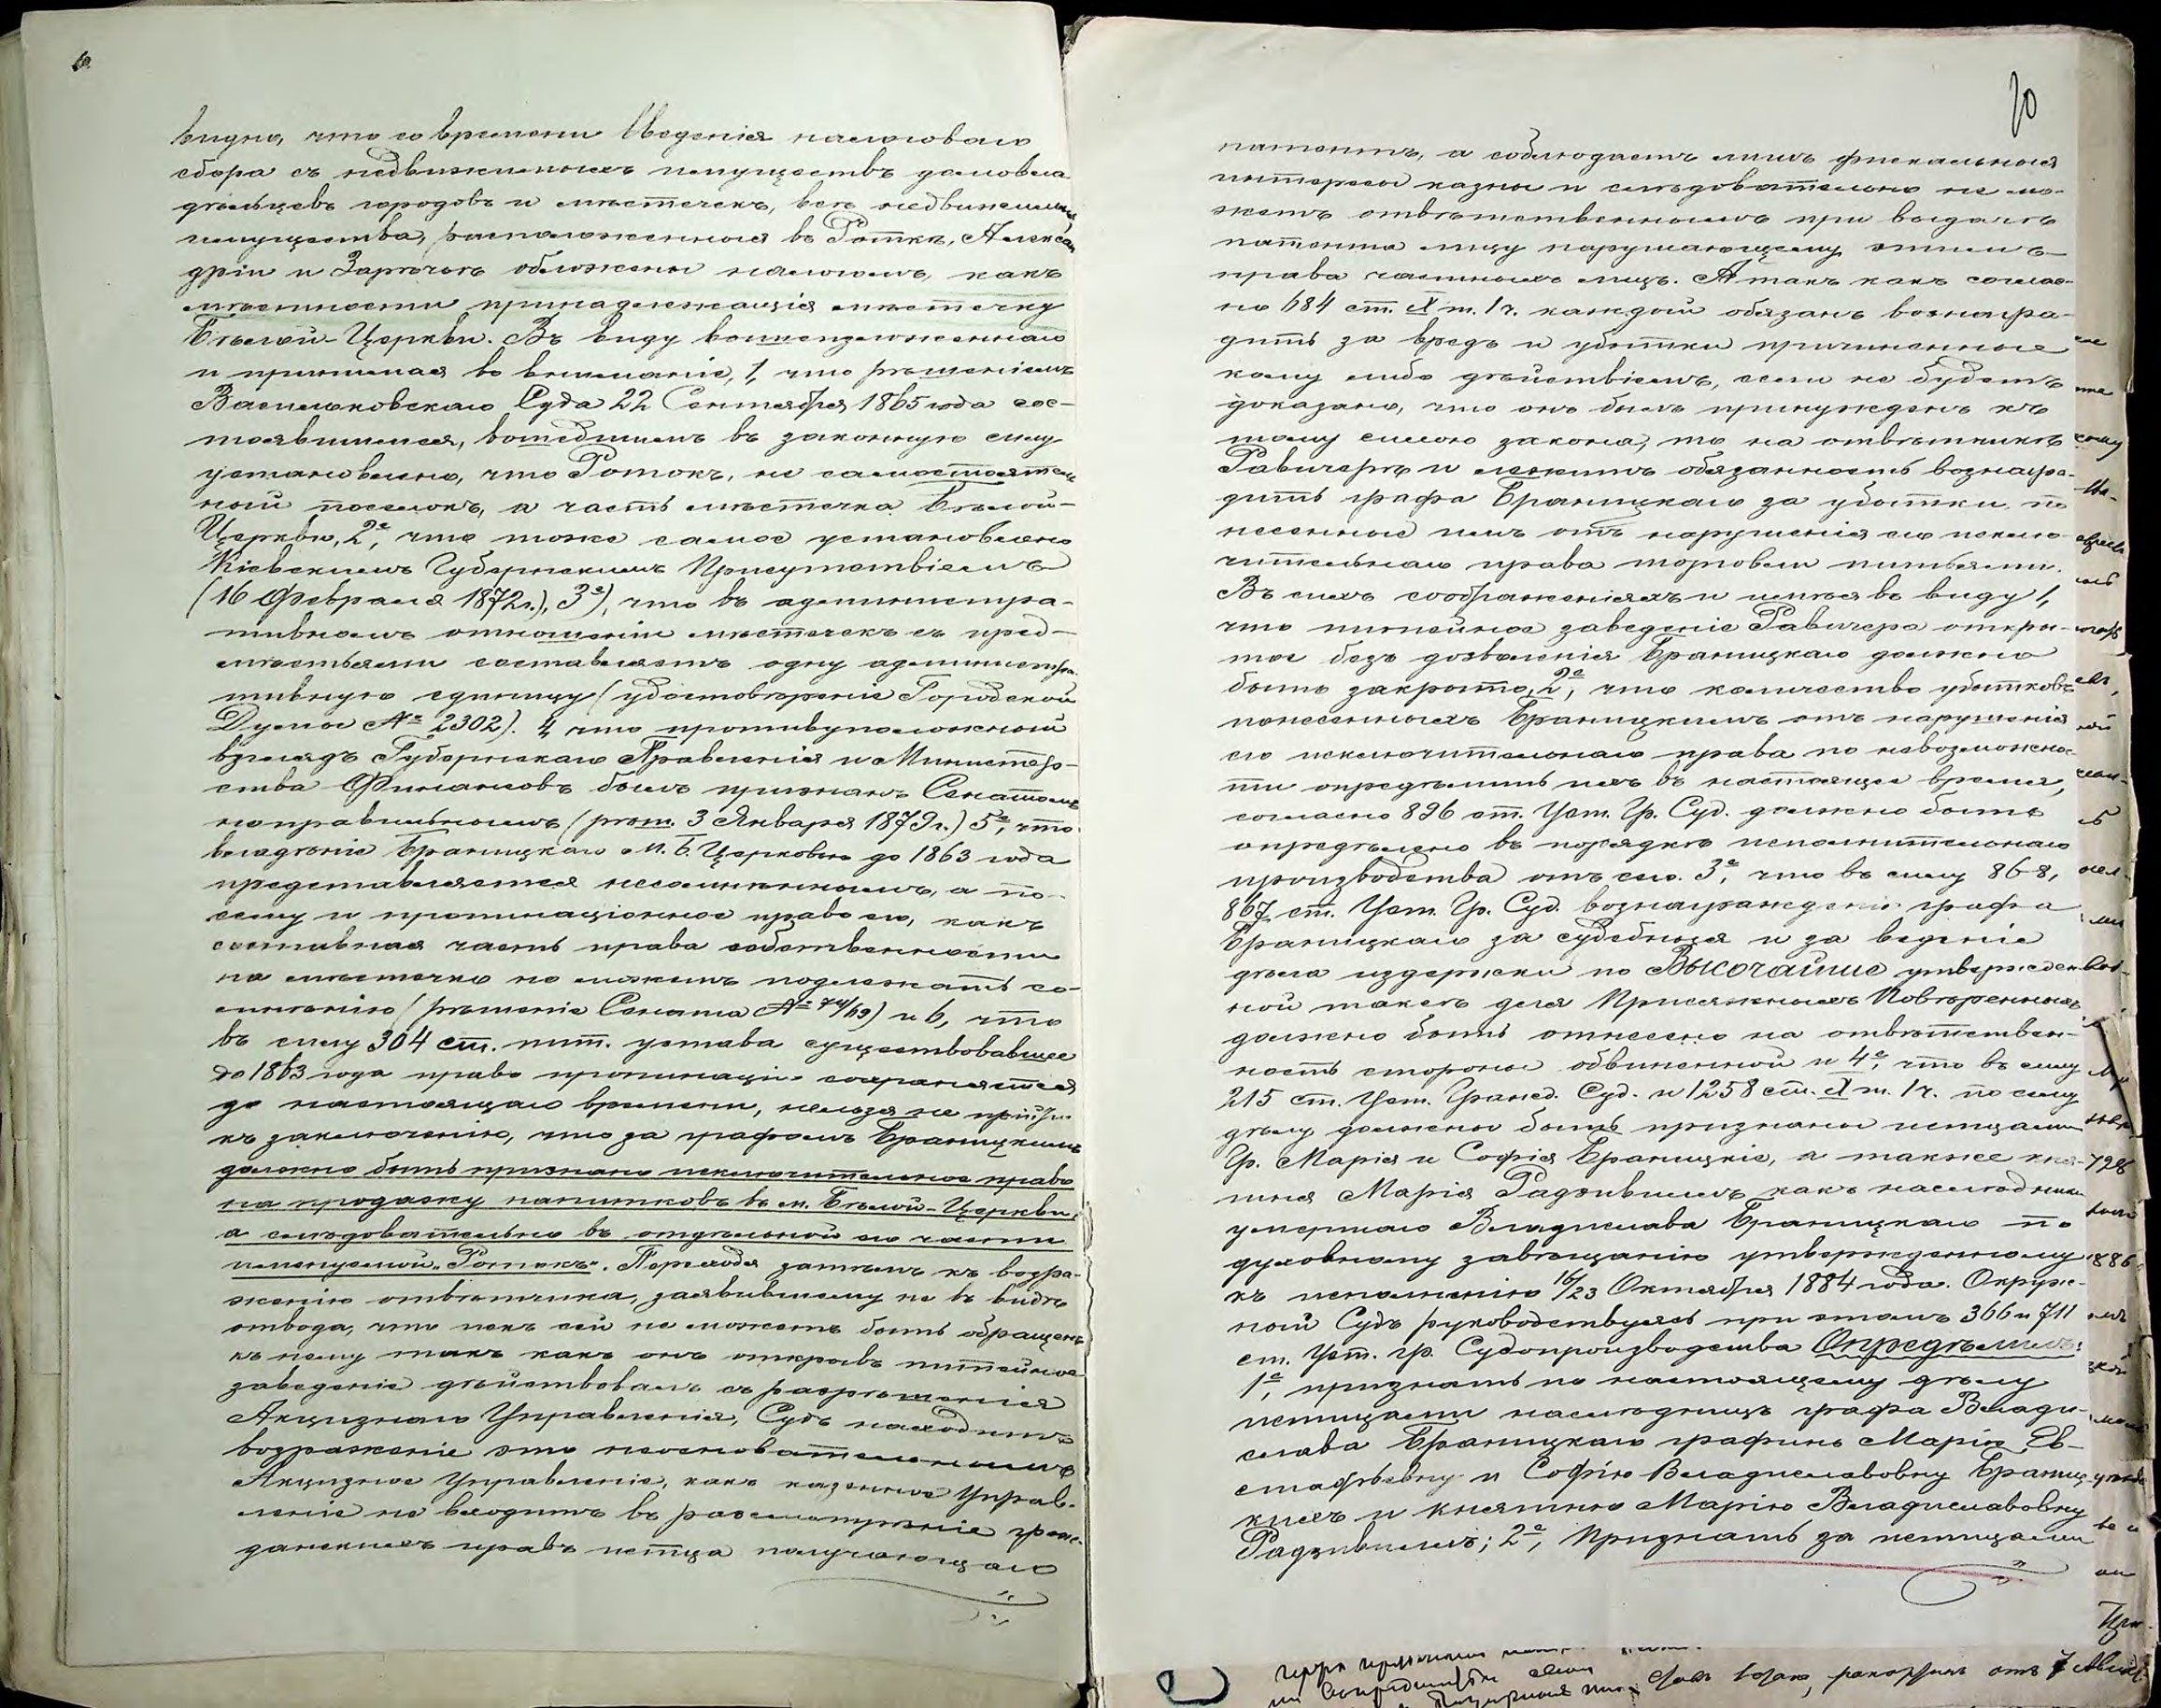 видно, что со времени введенія налоговаго
сбора съ недвижимыхъ имуществъ домовла
дѣльцевъ городовъ и мѣстечекъ, всѣ недвижимыя
имущества, расположенныя въ Роткѣ, Алексан
дріи и Зарѣчьѣ обложены налогомъ, какъ
мѣстности принадлежащія мѣстечку
Бѣлой-Церкви. Въ виду вышеизложеннаго
и принимая во вниманіе, 1, что рѣшеніемъ
Васильковскаго Суда 22 Сентября 1865 года сос-
тоявшимся, вошедшимъ въ законную силу
установлено, что Ротокъ, не самостоятель
ный поселокъ, а часть мѣстечка Бѣлой-
Церкви, 2е, что тоже самое установлено
Кіевскимъ Губернскимъ Присутствіемъ
(16 Февраля 1872г.), 3е), что въ администра-
тивномъ отношеніи мѣстечекъ съ пред-
мѣстьями составляетъ одну администра
тивную единицу (удостовѣреніе Городской
Думы № 2302). 4, что противуположный
взглядъ Губернскаго Правленія и Министер-
ства Финансовъ былъ признанъ Сенатомъ
неправильнымъ (рѣш. 3 Января 1879г.) 5е, что
владѣніе Браницкаго м. Б. Церковью до 1863 года
представляется несомнѣннымъ, а по-
сему и пропинаціонное право его, какъ
составная часть права собственности
на мѣстечко не можетъ подлежать со-
мнѣнію (рѣшеніе Сената № 74/69) и 6, что
въ силу 304 ст. пит. устава существовавшее
до 1863 года право пропинаціи сохраняется
до настоящаго времени, нельзя не прійти
къ заключенію, что за графомъ Браницкимъ
должно быть признано исключительное право
на продажу напитковъ въ м. Бѣлой-Церкви,
а слѣдовательно въ отдѣльной его части
именуемой „Ротокъ“. Переходя затѣмъ къ возра-
женію отвѣтчика, заявившему не въ видѣ
отвода, что искъ сей не можетъ быть обращенъ
къ нему такъ какъ онъ открывъ питейное
заведеніе дѣйствовалъ съ разрѣшенія
Акцизнаго Управленія, Судъ находитъ
возраженіе это неосновательнымъ
Акцизное Управленіе, какъ казенное Управ-
леніе не входитъ въ разсмотрѣніе граж-
данскихъ правъ истца получающаго
10
патентъ, а соблюдаетъ лишь фискальныя
интересы казны и слѣдовательно не мо-
жетъ отвѣтственнымъ при выдачѣ
патента лицу нарушающему этимъ
права частныхъ лицъ. А такъ какъ соглас-
но 684 ст. X т. 1ч. каждый обязанъ вознагра-
дить за вредъ и убытки причиненные
кому либо дѣйствіемъ, если не будетъ
доказано, что онъ былъ принужденъ къ
тому силою закона, то на отвѣтчикѣ
Равичерѣ и лежитъ обязанность вознагра-
дить графа Браницкаго за убытки по
несенные имъ отъ нарушенія его исклю-
чительнаго права торговли питьями.
Въ сихъ соображеніяхъ и имѣя въ виду 1,
что питейное заведеніе Равичера откры-
тое безъ дозволенія Браницкаго должно
быть закрыто, 2е, что количество убытковъ
понесенныхъ Браницкимъ отъ нарушенія
его исключительнаго права по невозможнос-
ти опредѣлить ихъ въ настоящее время,
согласно 896 ст. Уст. Гр. Суд. должно быть
опредѣлено въ порядкѣ исполнительнаго
производства 3е, что въ силу 868,
867 ст. Уст. Гр. Суд. вознагражденіе графа
Браницкаго за судебныя и за веденіе
дѣла издержки по Высочайше утвержден-
ной таксѣ для Присяжныхъ Повѣренныхъ
должно быть отнесено на отвѣтствен-
ность стороны обвиненной и 4е, что въ силу
215 ст. Уст. Гражд. Суд. и 1258 ст. X т. 1ч. по сему
дѣлу должны быть признаны истцами
Гр. Марія и Софія Браницкіе, а также кня-
гиня Марія Радзивиллъ какъ наслѣдники
умершаго Владислава Браницкаго по
духовному завѣщанію утвержденному
къ исполненію 16/23 Октября 1884 года. Окруж-
ный Судъ руководствуясь при этомъ 366 и 711
ст. Уст. гр. Судопроизводства Опредѣлилъ:
1е, признать по настоящему дѣлу
истицами наслѣдницъ графа Влади-
слава Браницкаго графинь Марію Ев-
стафьевну и Софію Владиславовну Браниц-
кихъ и княгиню Марію Владиславовну
Радзивиллъ; 2е, Признать за истицами